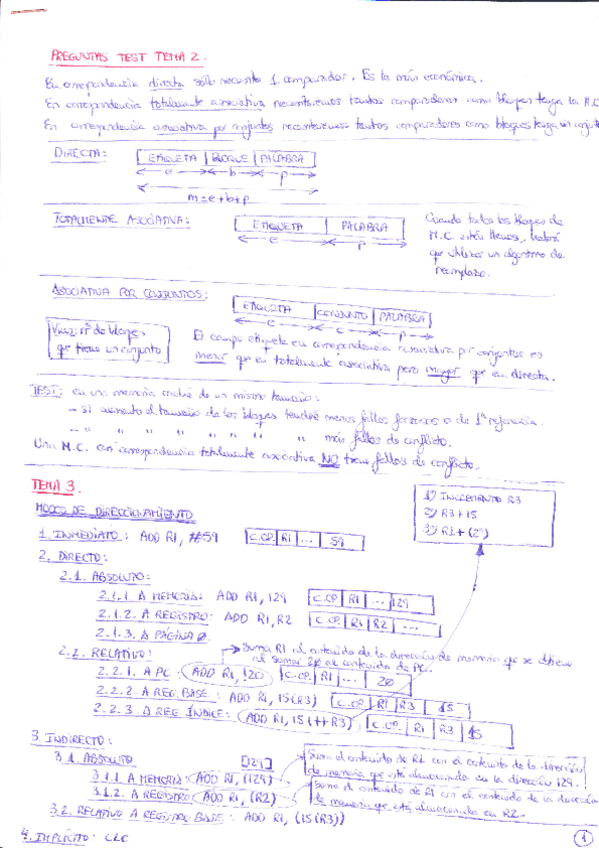 PREGUNTAS TEST TEMA 2.
En correspondencia directa sólo necesito 1 comparador. Es la más económica.
En correspondencia totalmente asociativa necesitaremos tantos comparadores como bloques tenga la M.C
En correspondencia asociativa por conjuntos necesitaremos tantos comparadores como bloques tenga un conjunto
DIRECTA:
ETIQUETA BLOQUE PALABRA
e b p
m=e+b+p
TOTALMENTE ASOCIATIVA:
ETIQUETA PALABRA
e p
Cuando todos los bloques de
M.C. estén llenos, habrá
que utilizar un algoritmo de
reemplazo.
ASOCIATIVA POR CONJUNTOS:
ETIQUETA CONJUNTO PALABRA
e c p
Vías: nº de bloques
que tiene un conjunto
El campo etiqueta en correspondencia asociativa por conjuntos es
menor que en totalmente asociativa pero mayor que en directa.
TEST: en una memoria caché de un mismo tamaño:
- si aumento el tamaño de los bloques tendré menos fallos forzosos o de 1ª referencia.
- " " " " " " " " " más fallos de conflicto.
Una M.C. con correspondencia totalmente asociativa NO tiene fallos de conflicto.
TEMA 3.
MODOS DE DIRECCIONAMIENTO
1) INCREMENTO R3
2) R3+15
3) R1+(2º)
1. INMEDIATO: ADD R1, #59 C.OP. R1 ... 59
2. DIRECTO:
2.1. ABSOLUTO:
2.1.1. A MEMORIA: ADD R1, 129 C.OP R1 ... 129
2.1.2. A REGISTRO: ADD R1, R2 C.OP. R1 R2 ...
2.1.3. A PÁGINA 0
2.2. RELATIVO:
Suma R1 al contenido de la dirección de memoria que se obtiene
al sumar 20 al contenido de PC.
2.2.1. A PC: ADD R1, !20 C.OP. R1 ... 20
2.2.2. A REG. BASE: ADD R1, 15(R3) C.OP. R1 R3 15
2.2.3. A REG. ÍNDICE: ADD R1, 15(++R3) C.OP. R1 R3 15
3. INDIRECTO:
3.1. ABSOLUTO [129]
3.1.1. A MEMORIA: ADD R1, (129)
Suma el contenido de R1 con el contenido de la dirección
de memoria que está almacenada en la dirección 129.
3.1.2. A REGISTRO: ADD R1, (R2)
Suma el contenido de R1 con el contenido de la dirección
de memoria que está almacenada en R2.
3.2. RELATIVO A REGISTRO BASE: ADD R1, (15(R3))
4. IMPLÍCITO: CLC
1